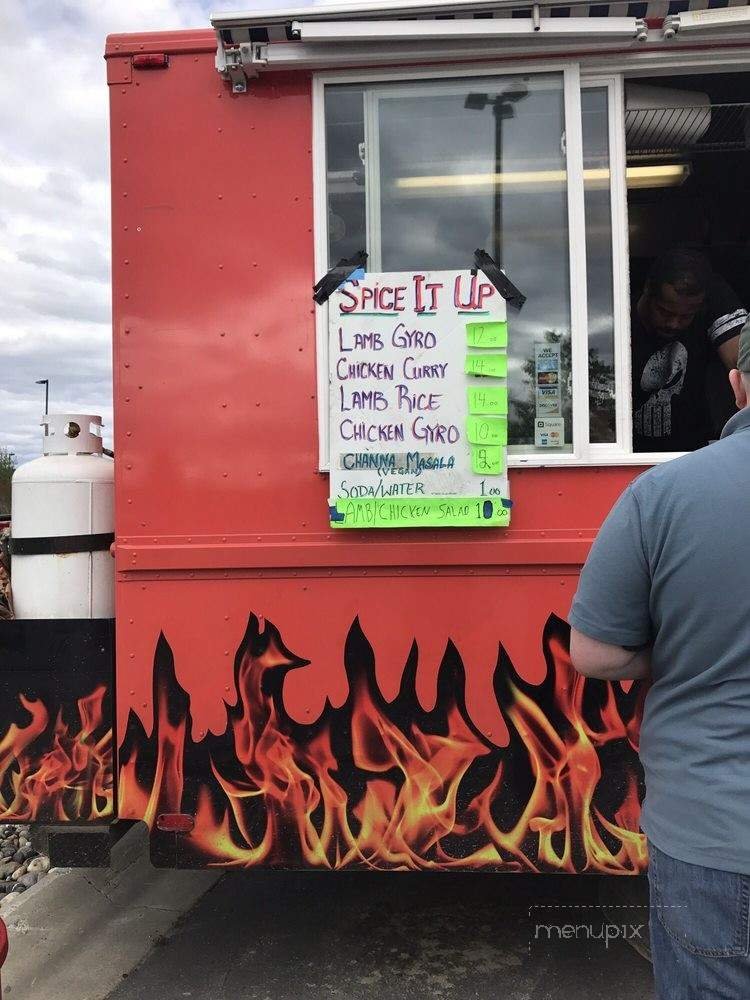 SPICE IT UP
LAMB GYRO 12.00
CHICKEN CURRY 14.00
LAMB RICE 14.00
CHICKEN GYRO 10.00
CHANNA MASALA
(VEGAN)
SODA/WATER 1.00
LAMB/CHICKEN SALAD 10.00
WE
ACCEPT
VISA
DISCOVER
Square
VISA
menupix